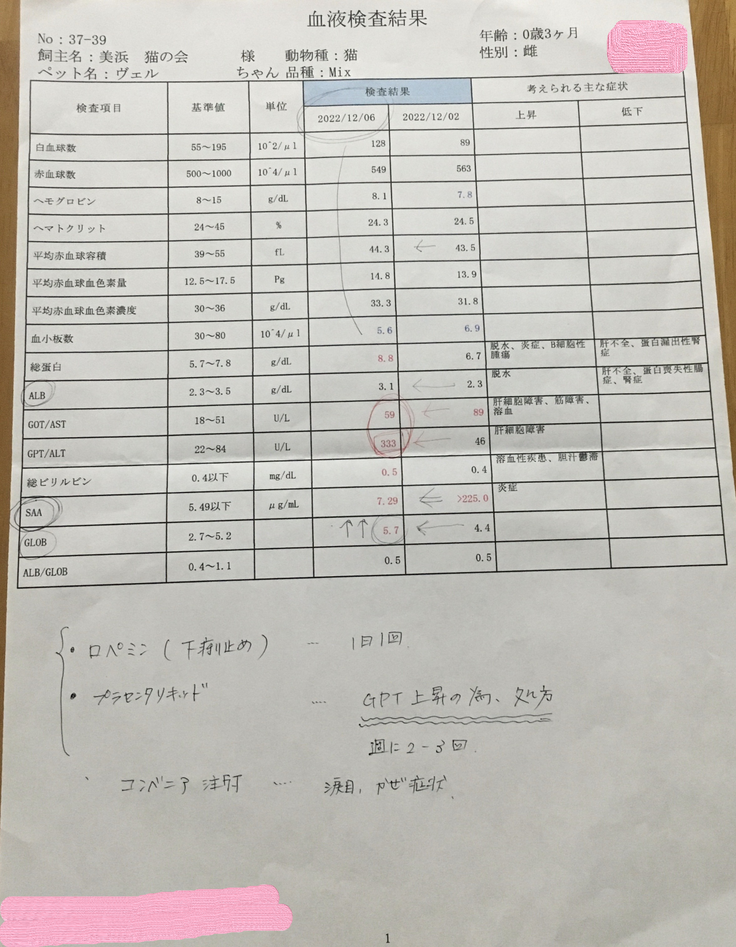 血液検査結果
No：37-39
年齢：0歳3ヶ月
飼主名：美浜 猫の会 様 動物種：猫
性別：雌
ペット名：ヴェル ちゃん 品種：Mix
検査項目 基準値 単位 検査結果 考えられる主な症状
2022/12/06 2022/12/02 上昇 低下
白血球数 55～195 10^2/μl 128 89
赤血球数 500～1000 10^4/μl 549 563
ヘモグロビン 8～15 g/dL 8.1 7.8
ヘマトクリット 24～45 % 24.3 24.5
平均赤血球容積 39～55 fL 44.3 ← 43.5
平均赤血球血色素量 12.5～17.5 Pg 14.8 13.9
平均赤血球血色素濃度 30～36 g/dL 33.3 31.8
血小板数 30～80 10^4/μl 5.6 6.9
総蛋白 5.7～7.8 g/dL 8.8 6.7 脱水、炎症、B細胞性腫瘍 肝不全、蛋白漏出性腎症
ALB 2.3～3.5 g/dL 3.1 ← 2.3 脱水 肝不全、蛋白喪失性腸症、腎症
GOT/AST 18～51 U/L 59 ← 89 肝細胞障害、筋障害、溶血
GPT/ALT 22～84 U/L 333 ← 46 肝細胞障害
総ビリルビン 0.4以下 mg/dL 0.5 0.4 溶血性疾患、胆汁鬱滞
SAA 5.49以下 μg/mL 7.29 ⇐ >225.0 炎症
GLOB 2.7～5.2 ↑↑ 5.7 ← 4.4
ALB/GLOB 0.4～1.1 0.5 0.5
・ロペミン（下痢止め） … 1日1回
・プラセンタリキッド …. GPT上昇の為、処方
週に2-3回.
・コンベニア注射 …. 涙目、かぜ症状
1